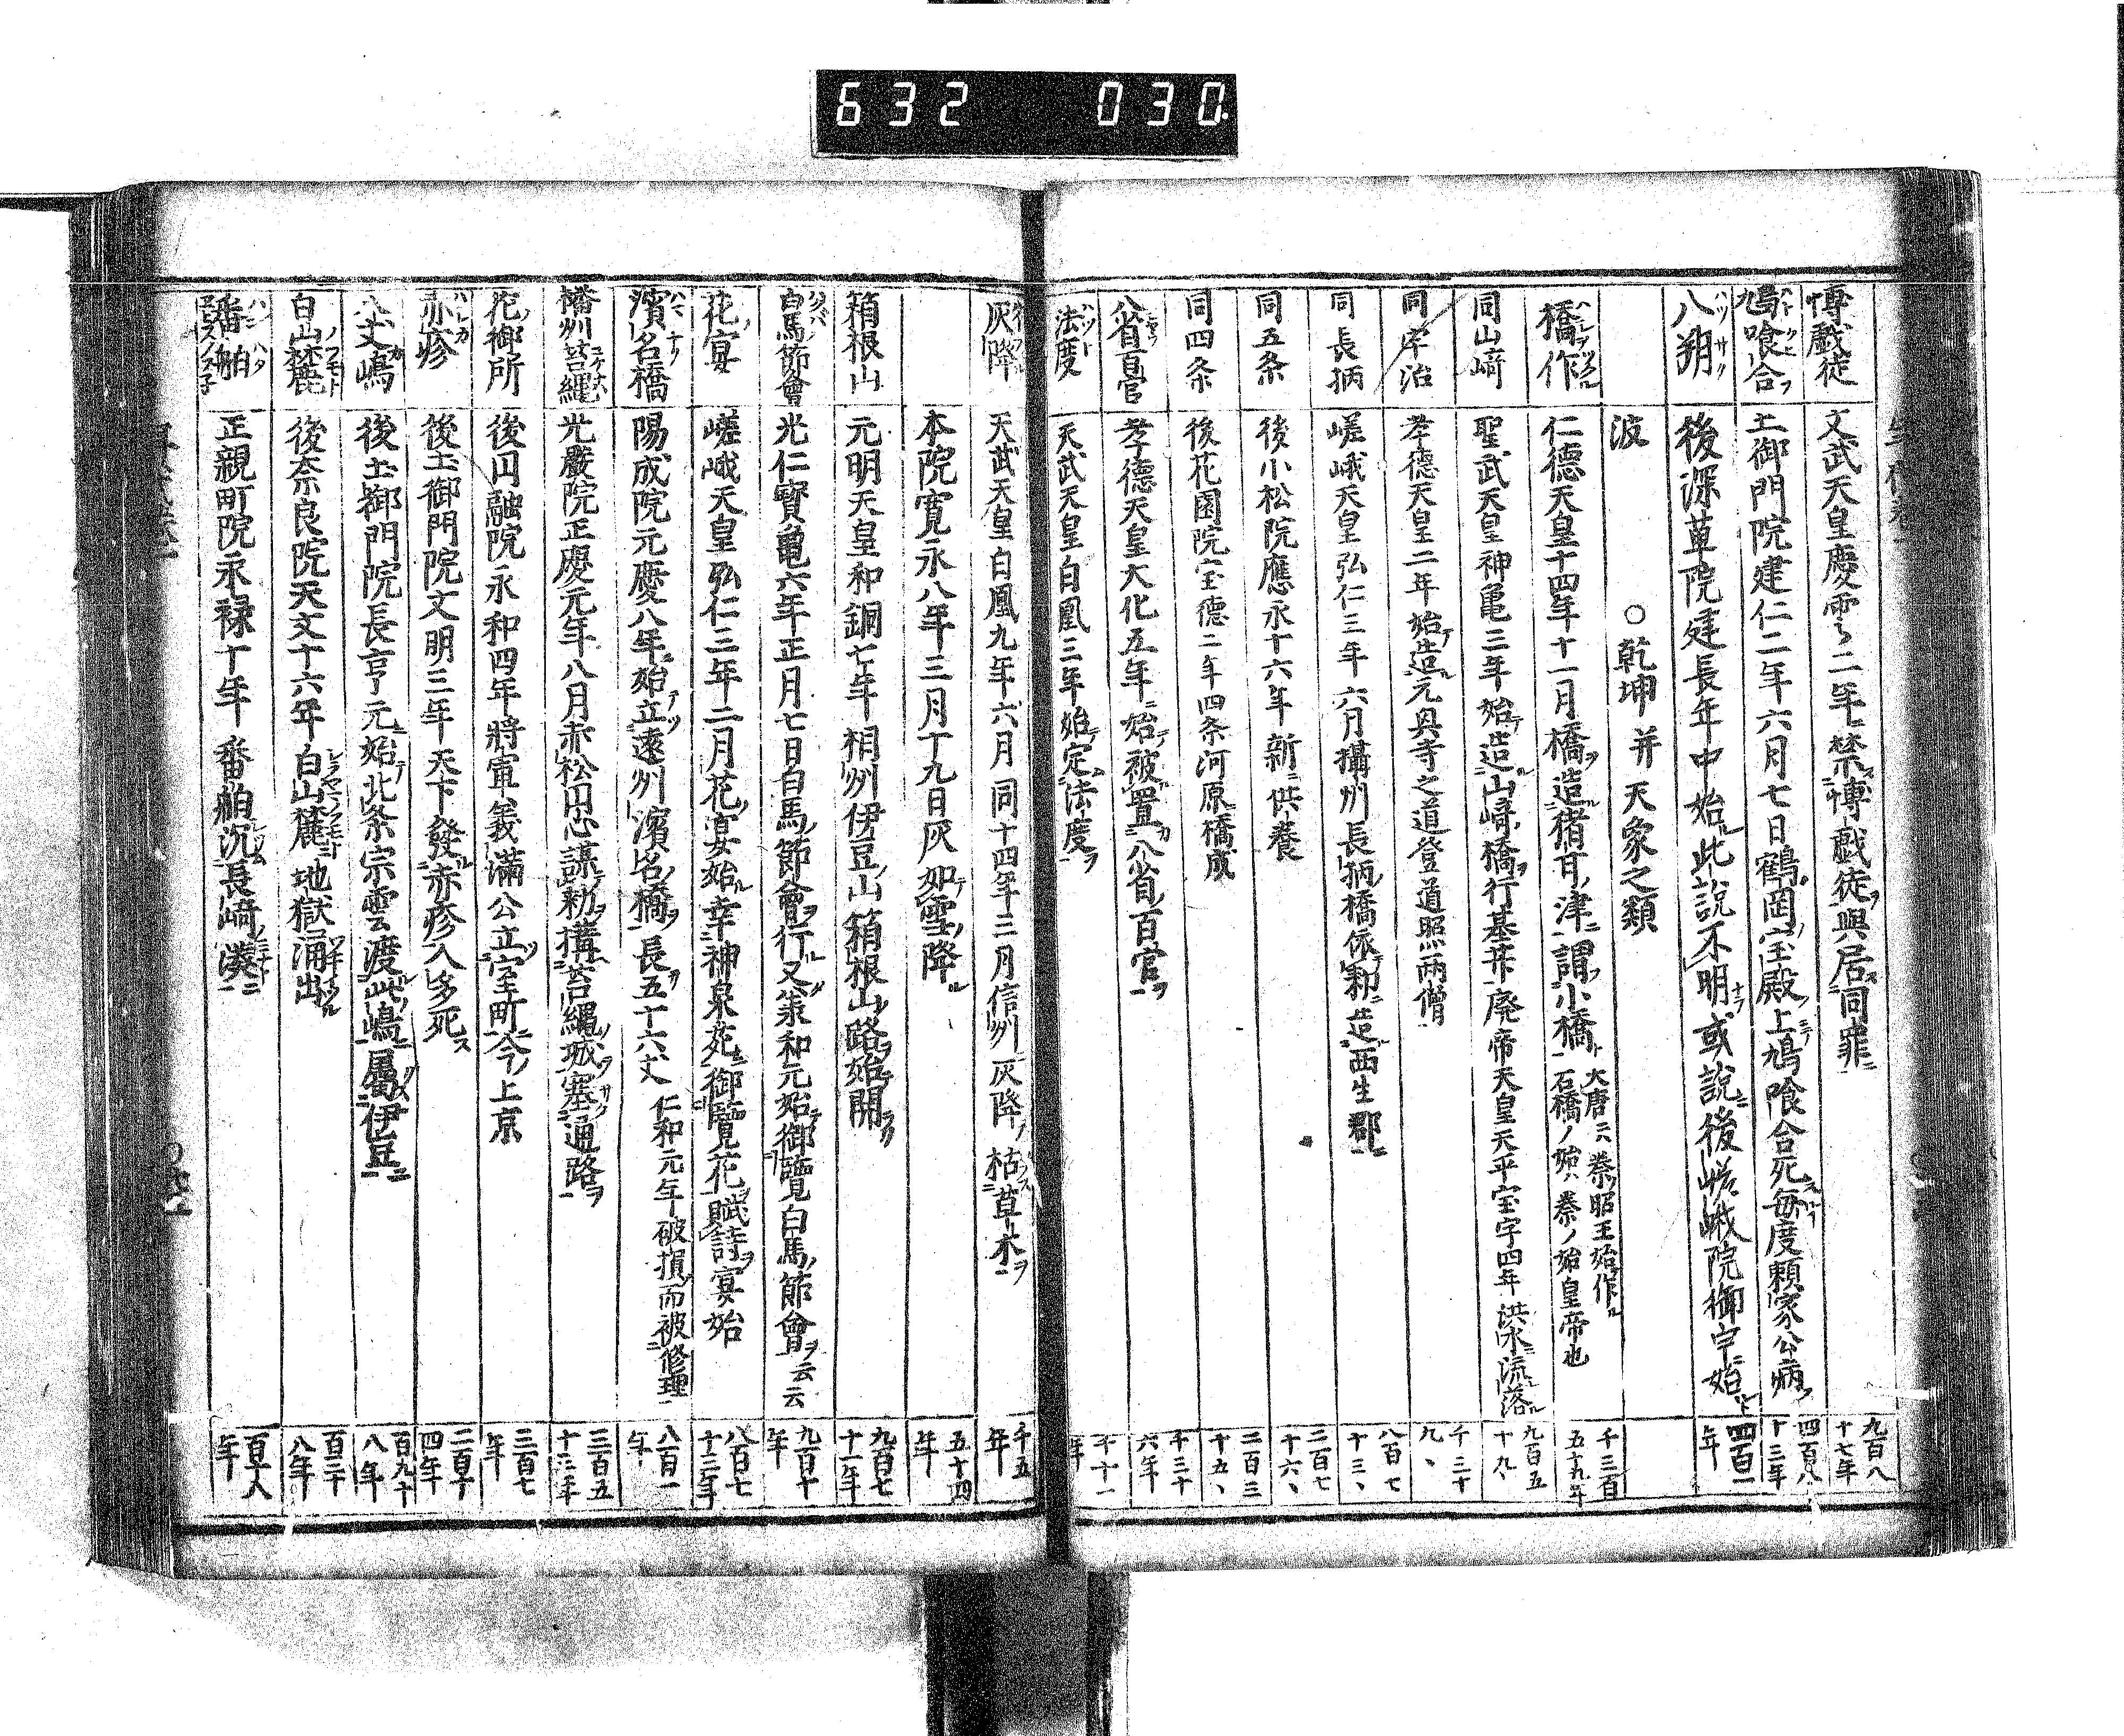 632 030
博戯徒 文武天皇慶雲二年禁博戯徒與居同罪 九百八十七年
鳩喰合 土御門院建仁二年六月七日鶴岡宝殿上鳩喰合死毎度頼家公病 四百八十三年
八朔 後深草院建長年中始此説不明或説後嵯峨院御宇始 四百一年
波 ○乾坤并天象之類
橋作 仁徳天皇十四年十一月橋造猪耳津謂小橋 大唐ニハ秦昭王始作 石橋ノ始ハ秦ノ始皇帝也 千三百五十九年
同山﨑 聖武天皇神亀三年始造山﨑橋行基井廃帝天皇天平宝字四年洪水流落 九百五十九、
同宇治 孝德天皇二年始造元興寺之道登道照両僧 千三十九、
同長柄 嵯峨天皇弘仁三年六月攝州長柄橋依勅造西生郡 八百七十三、
同五条 後小松院應永十六年新供養 二百七十六、
同四条 後花園院宝德二年四条河原橋成 二百三十五、
八省百官 孝德天皇大化五年始被置八省百官 千三十六年
法度 天武天皇白凰三年始定法度 千十一年
灰降 天武天皇白鳳九年六月同十四年三月信州灰降枯草木 千五年
本院寛永八年三月十九日灰如雪降 五十四年
箱根山 元明天皇和銅七年相州伊豆山箱根山路始開 九百七十一年
白馬節會 光仁寳亀六年正月七日白馬節會行又兼和元始御覽白馬節會云云 九百十年
花宴 嵯峨天皇弘仁三年二月花宴始幸神泉苑御覽花賦詩宴始 八百七十三年
濱名橋 陽成院元慶八年始立遠州濱名橋長五十六丈 仁和元年破損而被修理 八百一年
播州苔縄 光嚴院正慶元年八月赤松円心謀勅構苔縄城塞通路 三百五十三年
花御所 後円融院永和四年將軍義滿公立室町今上京 三百七年
赤疹 後土御門院文明三年天下發赤疹人多死 二百十四年
八丈嶋 後土御門院長亨元始北条宗雲渡此嶋屬伊豆 百九十八年
白山麓 後奈良院天文十六年白山麓地獄涌出 百三十八年
番舶 正親町院永禄十年番舶沉長﨑湊 百十八年